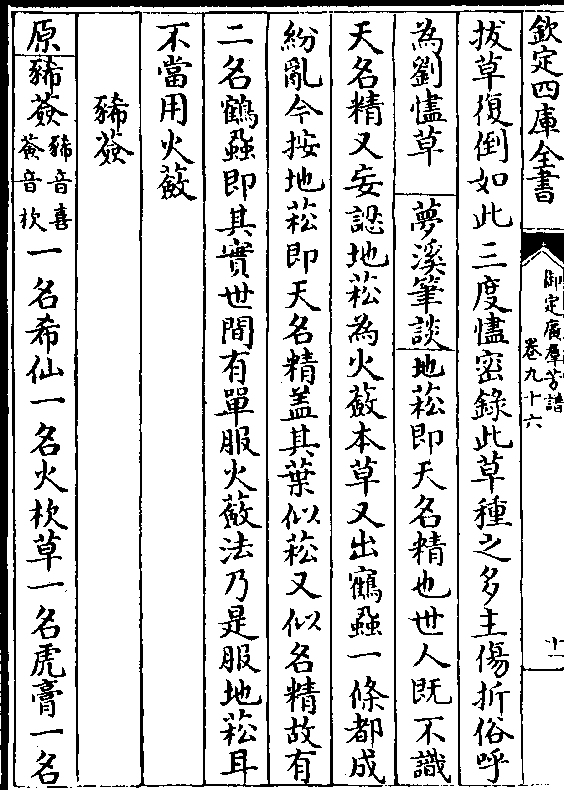 欽定四庫全書
御定廣羣芳譜
卷九十六
十一
拔草復倒如此三度儘密錄此草種之多主傷折俗呼
為劉儘草 夢溪筆談地菘即天名精也世人既不識
天名精又妄認地菘為火蘞本草又出鶴蝨一條都成
紛亂今按地菘即天名精盖其葉似菘又似名精故有
二名鶴蝨即其實世間有單服火蘞法乃是服地菘耳
不當用火蘞
豨薟
原豨薟豨音喜薟音杴一名希仙一名火杴草一名虎膏一名